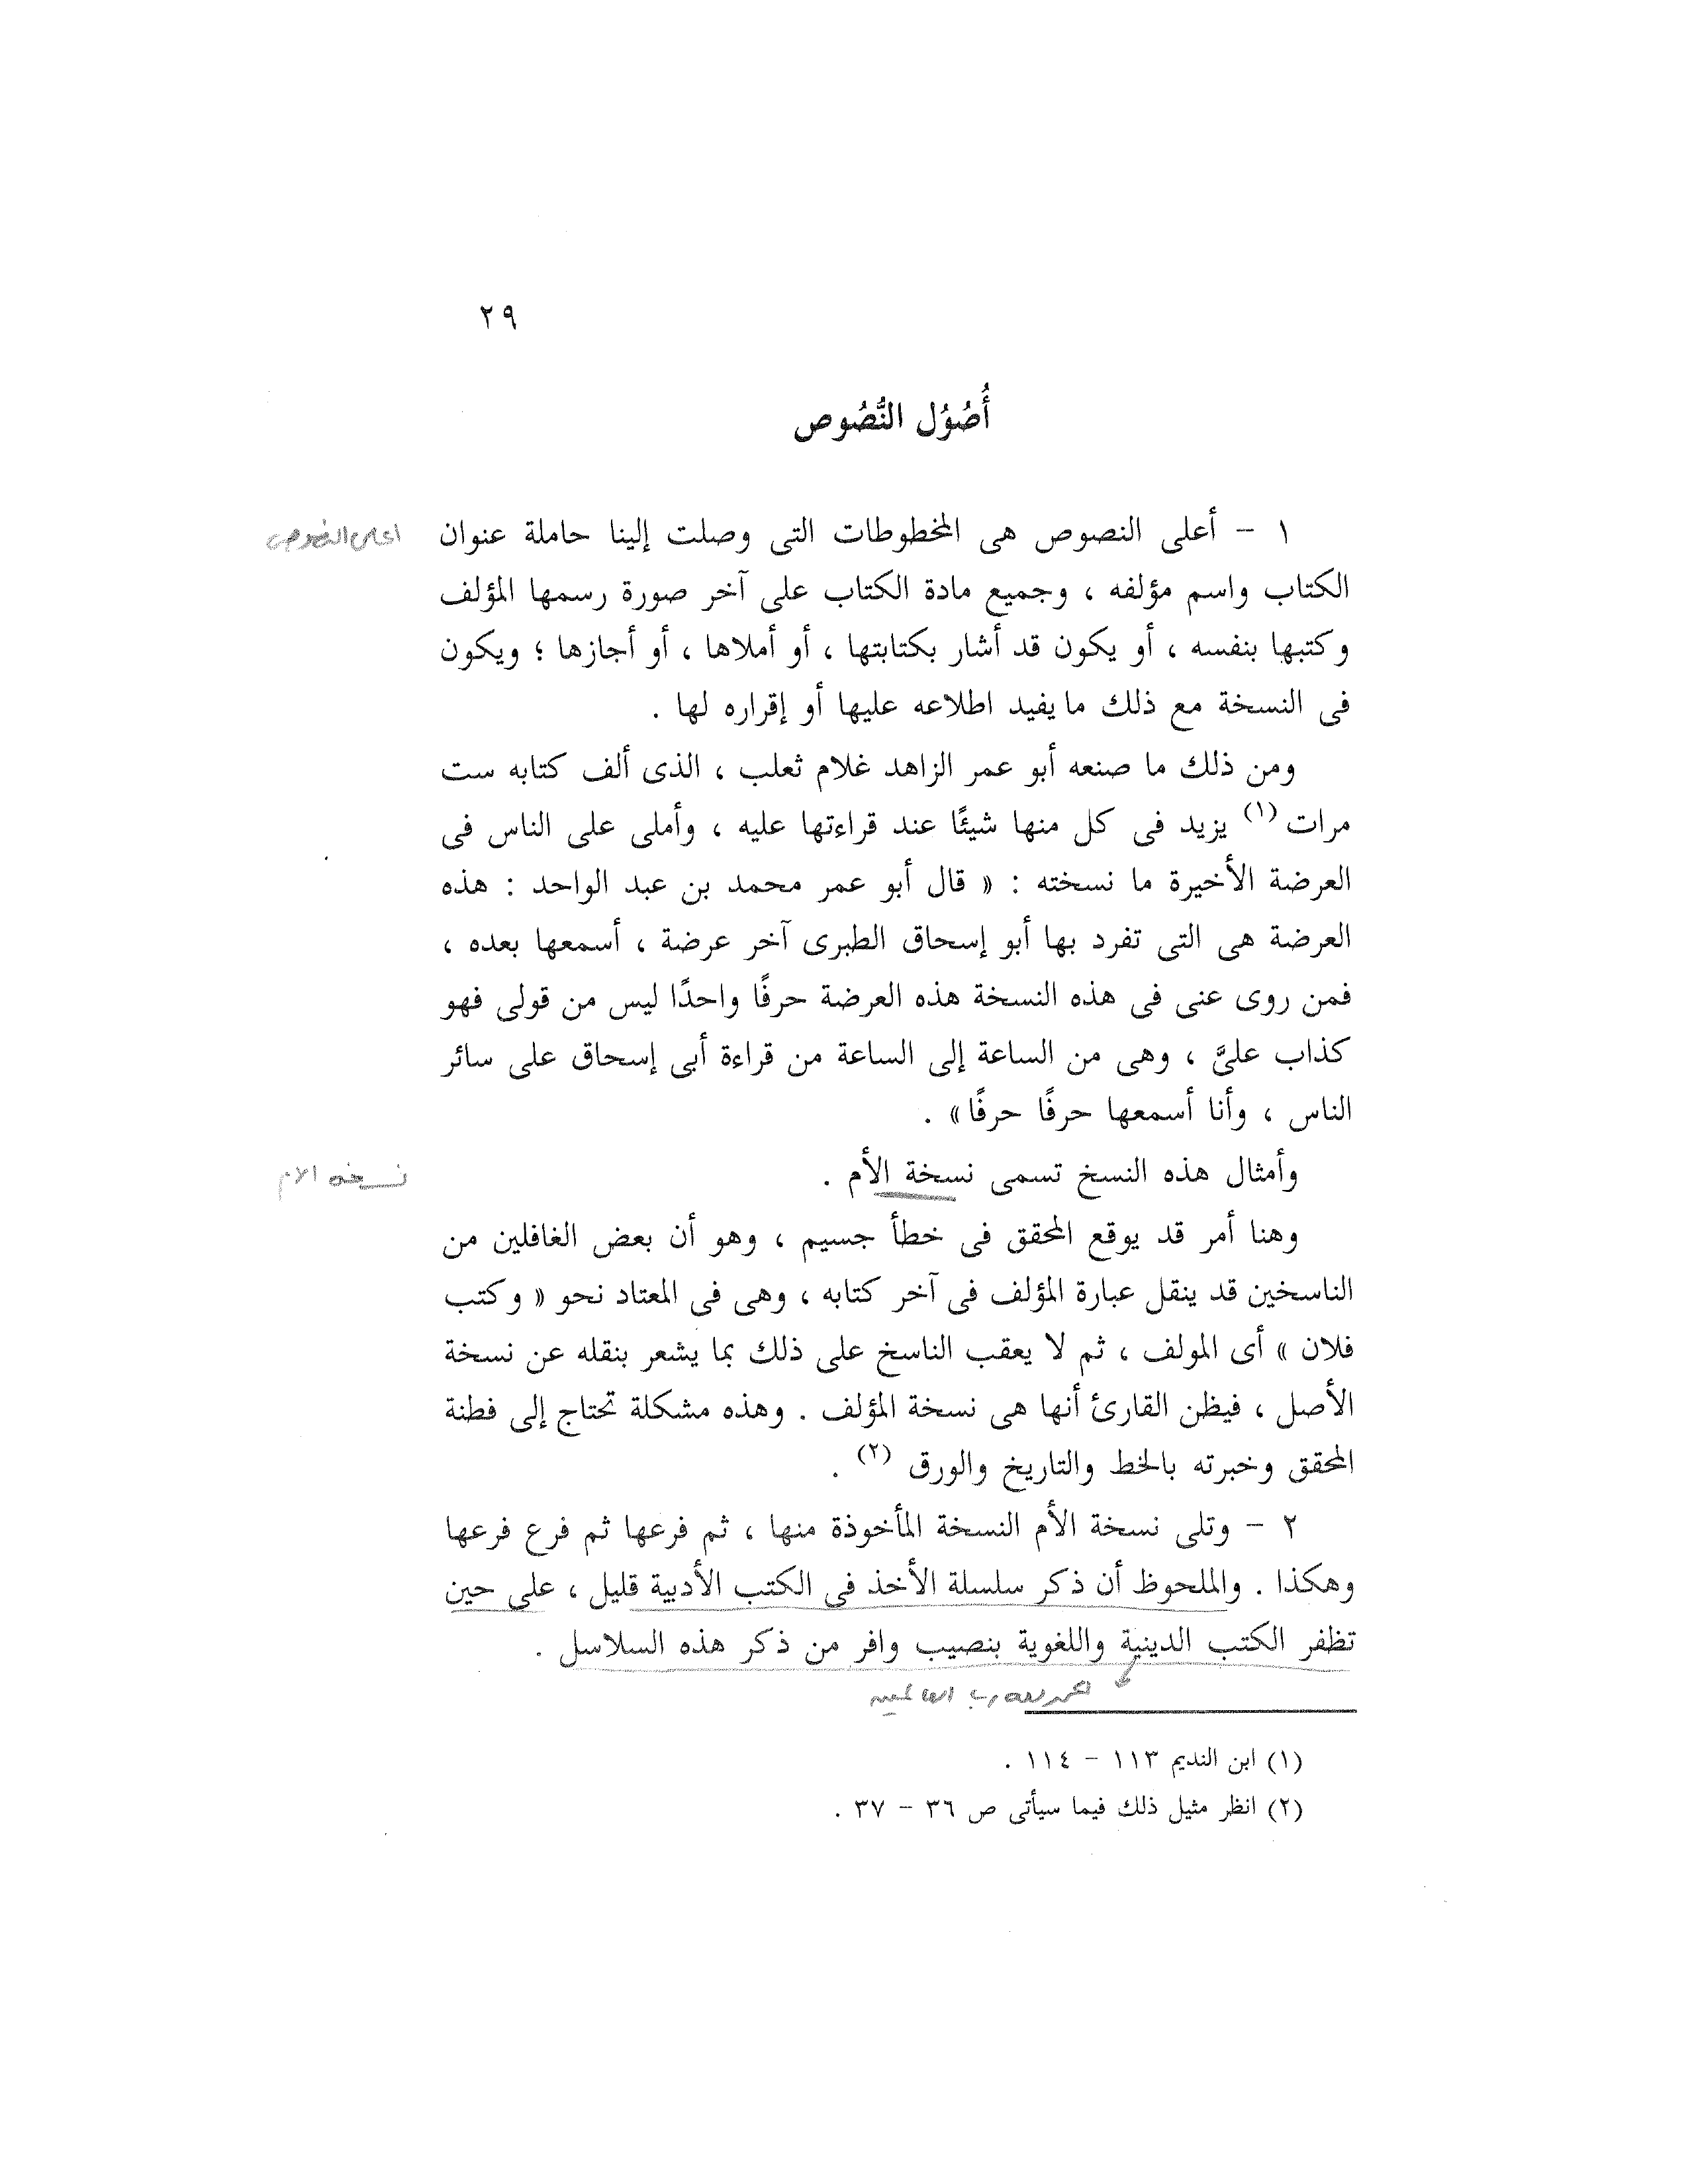 ٢٩
أُصُوْل النُّصُوص
١ - أعلى النصوص هى المخطوطات التى وصلت إلينا حاملة عنوان
اعلى النصوص
الكتاب واسم مؤلفه ، وجميع مادة الكتاب على آخر صورة رسمها المؤلف
وكتبها بنفسه ، أو يكون قد أشار بكتابتها ، أو أملاها ، أو أجازها ؛ ويكون
فى النسخة مع ذلك ما يفيد اطلاعه عليها أو إقراره لها .
ومن ذلك ما صنعه أبو عمر الزاهد غلام ثعلب ، الذى ألف كتابه ست
مرات (١) يزيد فى كل منها شيئًا عند قراءتها عليه ، وأملى على الناس فى
العرضة الأخيرة ما نسخته : « قال أبو عمر محمد بن عبد الواحد : هذه
العرضة هى التى تفرد بها أبو إسحاق الطبرى آخر عرضة ، أسمعها بعده ،
فمن روى عنى فى هذه النسخة هذه العرضة حرفًا واحدًا ليس من قولى فهو
كذاب علىَّ ، وهى من الساعة إلى الساعة من قراءة أبى إسحاق على سائر
الناس ، وأنا أسمعها حرفًا حرفًا » .
وأمثال هذه النسخ تسمى نسخة الأم .
نسخه الام
وهنا أمر قد يوقع المحقق فى خطأ جسيم ، وهو أن بعض الغافلين من
الناسخين قد ينقل عبارة المؤلف فى آخر كتابه ، وهى فى المعتاد نحو « وكتب
فلان » أى المولف ، ثم لا يعقب الناسخ على ذلك بما يشعر بنقله عن نسخة
الأصل ، فيظن القارئ أنها هى نسخة المؤلف . وهذه مشكلة تحتاج إلى فطنة
المحقق وخبرته بالخط والتاريخ والورق (٢) .
٢ - وتلى نسخة الأم النسخة المأخوذة منها ، ثم فرعها ثم فرع فرعها
وهكذا . والملحوظ أن ذكر سلسلة الأخذ فى الكتب الأدبية قليل ، على حين
تظفر الكتب الدينية واللغوية بنصيب وافر من ذكر هذه السلاسل .
الحمد لله رب العالمين
(١) ابن النديم ١١٣ - ١١٤ .
(٢) انظر مثيل ذلك فيما سيأتى ص ٣٦ - ٣٧ .